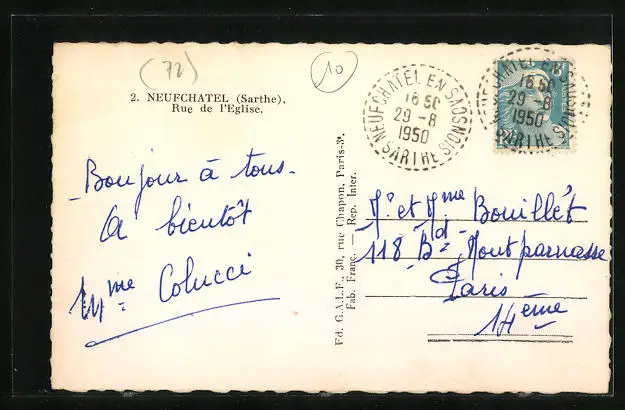 (72)
10
2. NEUFCHATEL (Sarthe).
Rue de l'Eglise.
Bonjour à tous
A bientôt
Mme Colucci
Ed. G.A.L.F. 30, rue Chapon, Paris-3e.
Fab. Franc. — Rep. Inter.
NEUFCHATEL EN SAOSNOIS
16 50
29-8
1950
SARTHE
NEUFCHATEL EN SAOSNOIS
16 50
29-8
1950
SARTHE
Mr et Mme Bouillét
118 Bd Montparnasse
Paris
14ème